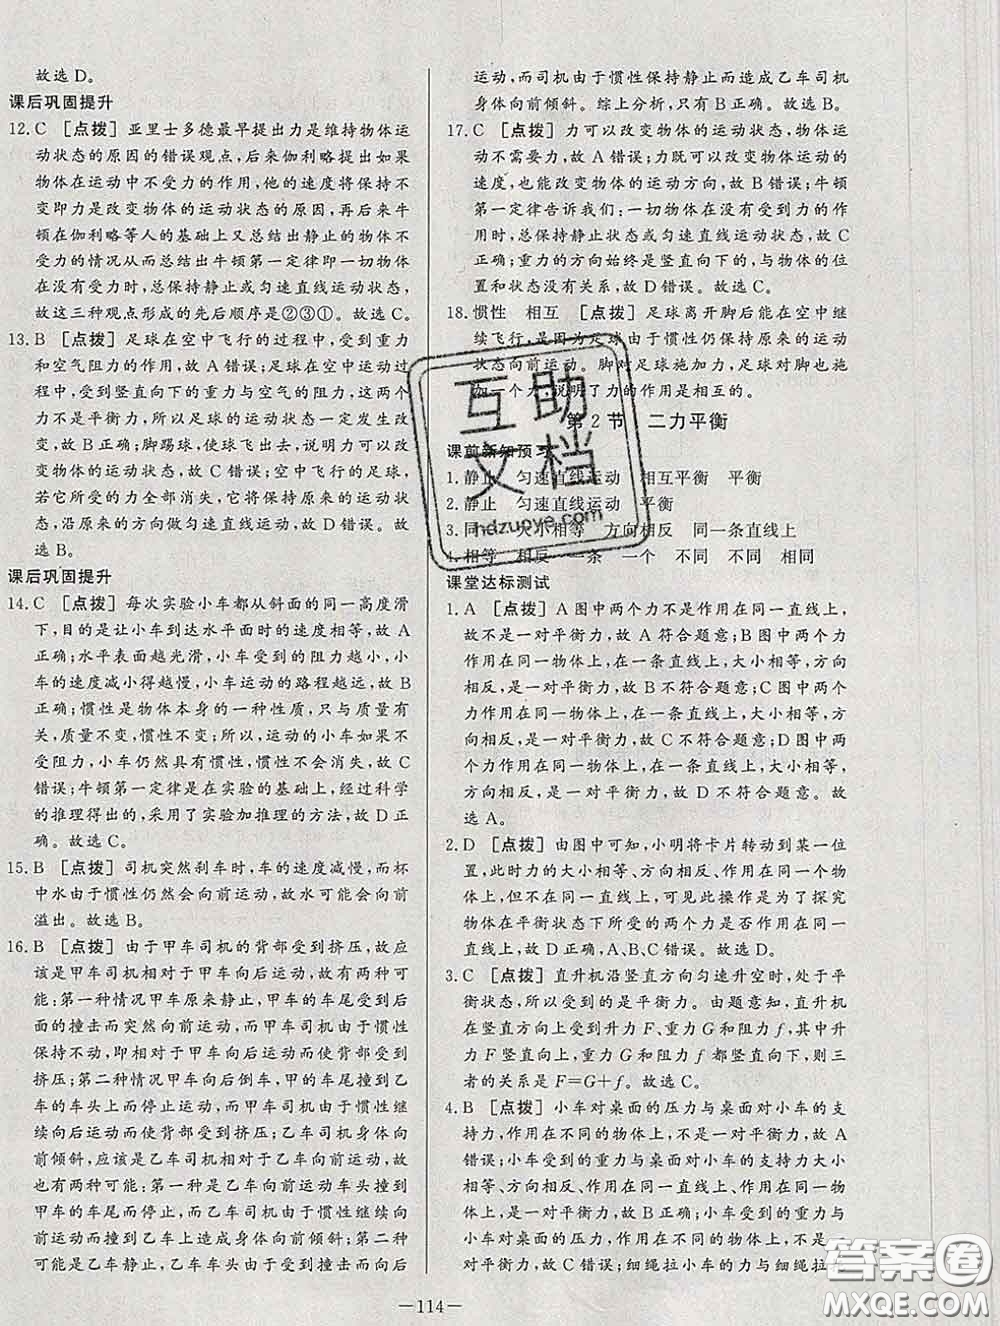 故选 D。
课后巩固提升
12. C [点拨] 亚里士多德最早提出力是维持物体运
动状态的原因的错误观点，后来伽利略指出如果
物体在运动中不受力的作用，他的速度将保持不
变即力是改变物体的运动状态的原因，再后来牛
顿在伽利略等人的基础上又总结出静止的物体不
受力的情况从而总结出牛顿第一定律即一切物体
在没有受力时，总保持静止或匀速直线运动状态，
故这三种观点形成的先后顺序是②③①。故选 C。
13. B [点拨] 足球在空中飞行的过程中，受到重力
和空气阻力的作用，故 A 错误；足球在空中运动过
程中，受到竖直向下的重力与空气的阻力，这两个
力不是平衡力，所以足球的运动状态一定发生改
变，故 B 正确；脚踢球，使球飞出去，说明力可以改
变物体的运动状态，故 C 错误；空中飞行的足球，
若它所受的力全部消失，它将保持原来的运动状
态，沿原来的方向做匀速直线运动，故 D 错误。故
选 B。
课后巩固提升
14. C [点拨] 每次实验小车都从斜面的同一高度滑
下，目的是让小车到达水平面时的速度相等，故 A
正确；水平表面越光滑，小车受到的阻力越小，小
车的速度减小得越慢，小车运动的路程越远，故 B
正确；惯性是物体本身的一种性质，只与质量有
关，质量不变，惯性不变；所以，运动的小车如果不
受阻力，小车仍然具有惯性，惯性不会消失，故 C
错误；牛顿第一定律是在实验的基础上，经过科学
的推理得出的，采用了实验加推理的方法，故 D 正
确。故选 C。
15. B [点拨] 司机突然刹车时，车的速度减慢，而杯
中水由于惯性仍然会向前运动，故水可能会向前
溢出。故选 B。
16. B [点拨] 由于甲车司机的背部受到挤压，故应
该是甲车司机相对于甲车向后运动，故有两种可
能：第一种情况甲车原来静止，甲车的车尾受到后
面的撞击而突然向前运动，甲车司机由于惯性
保持不动，即相对于甲车向后运动而使背部受到
挤压；第二种情况甲车向后倒车，甲的车尾撞到乙
车的车头上而停止运动，而甲车司机由于惯性继
续向后运动而使背部受到挤压；乙车司机身体向
前倾斜，应该是乙车司机相对于乙车向前运动，故
也有两种可能：第一种是乙车向前运动车头撞到
甲车的车尾而停止，而乙车司机由于惯性继续向
前运动而撞到乙车上造成身体向前倾斜；第二种
可能是乙车静止，乙车车头由于受到撞击而向后
运动，而司机由于惯性保持静止而造成乙车司机
身体向前倾斜。综上分析，只有 B 正确。故选 B。
17. C [点拨] 力可以改变物体的运动状态，物体的
运动不需要力，故 A 错误；力既可以改变物体运动的
速度，也能改变物体的运动方向，故 B 错误；牛顿
第一定律告诉我们：一切物体在没有受到力的作
用时，总保持静止状态或匀速直线运动状态，故 C
正确；重力的方向始终是竖直向下的，与物体的位
置和状态没有关系，故 D 错误。故选 C。
18. 惯性 相互 [点拨] 足球离开脚后能在空中继
续飞行，是因为足球由于惯性仍然保持原来的运动
状态向前运动。脚对足球施加力，足球对脚也施
加一个力，说明了力的作用是相互的。
第 2 节 二力平衡
课前新知预习
1. 静止 匀速直线运动 相互平衡 平衡
2. 静止 匀速直线运动 平衡
3. 同一 大小相等 方向相反 同一条直线上
4. 相等 相反 一条 一个 不同 不同 相同
课堂达标测试
1. A [点拨] A 图中两个力不是作用在同一直线上，
故不是一对平衡力，故 A 符合题意；B 图中两个力
作用在同一物体上，在一条直线上，大小相等，方向
相反，是一对平衡力，故 B 不符合题意；C 图中两个
力作用在同一物体上，在一条直线上，大小相等，方
向相反，是一对平衡力，故 C 不符合题意；D 图中两
个力作用在同一物体上，在一条直线上，大小相等，
方向相反，是一对平衡力，故 D 不符合题意。故
选 A。
2. D [点拨] 由图中可知，小明将卡片转动到某一位
置，此时力的大小相等、方向相反、作用在同一物体
上，但不在同一直线上，可见此操作是为了探究
物体在平衡状态下所受的两个力是否作用在同一
直线上，故 D 正确，A、B、C 错误。故选 D。
3. C [点拨] 直升机沿竖直方向匀速升空时，处于平
衡状态，所以受到的是平衡力。由题意知，直升机
在竖直方向上受到升力 F、重力 G 和阻力 f，其中升
力 F 竖直向上，重力 G 和阻力 f 都竖直向下，则三
者的关系是 F=G+f。故选 C。
4. B [点拨] 小车对桌面的压力与桌面对小车的支
持力，作用在不同的物体上，不是一对平衡力，故 A
错误；小车受到的重力与桌面对小车的支持力大小
相等、方向相反、作用在同一直线上、作用在同一物
体上，是一对平衡力，故 B 正确；小车受到的重力与
小车对桌面的压力，作用在不同的物体上，不是
一对平衡力，故 C 错误；细绳拉小车的力与小车拉
—114—
互助
文档
hdzuoye.com
答案圈
MXQE.COM